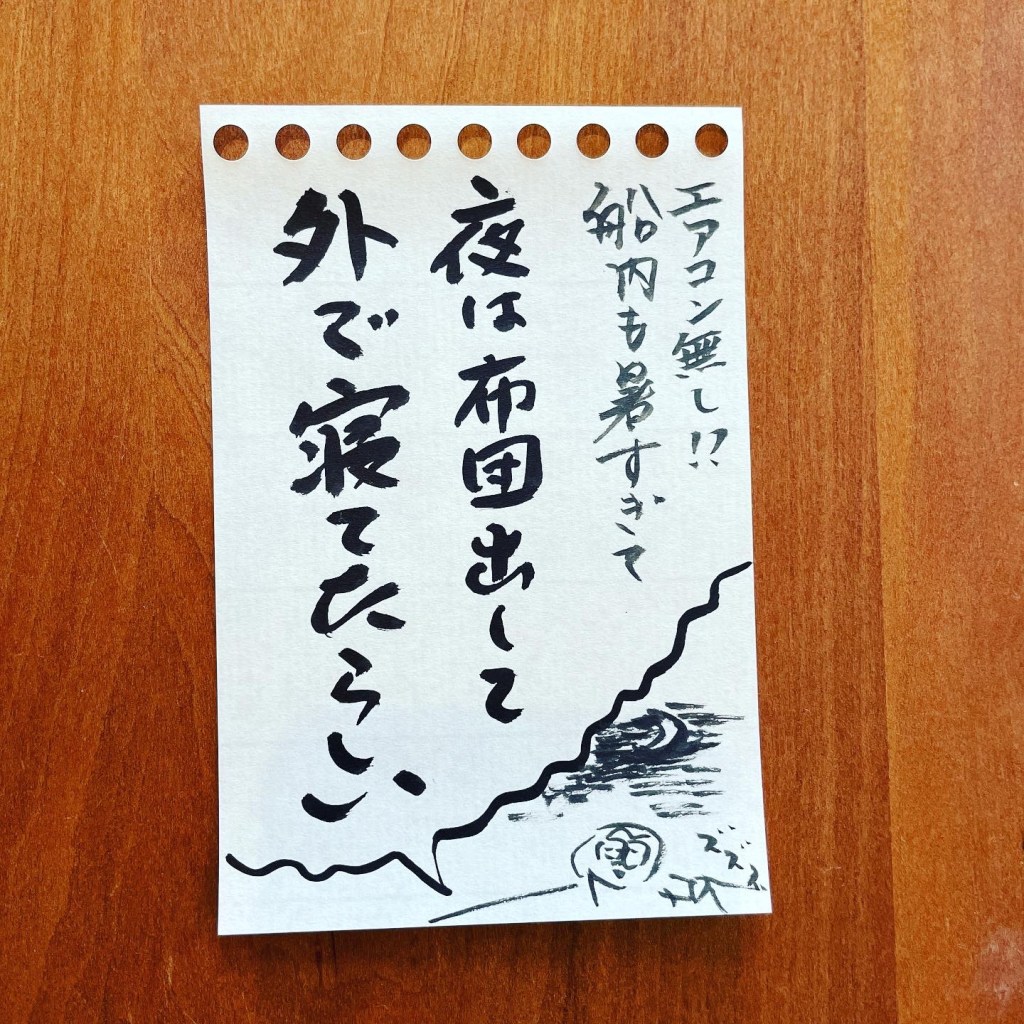 エアコン無し!?
船内も暑すぎて
夜は布団出して
外で寝てたらしい
ズズズ